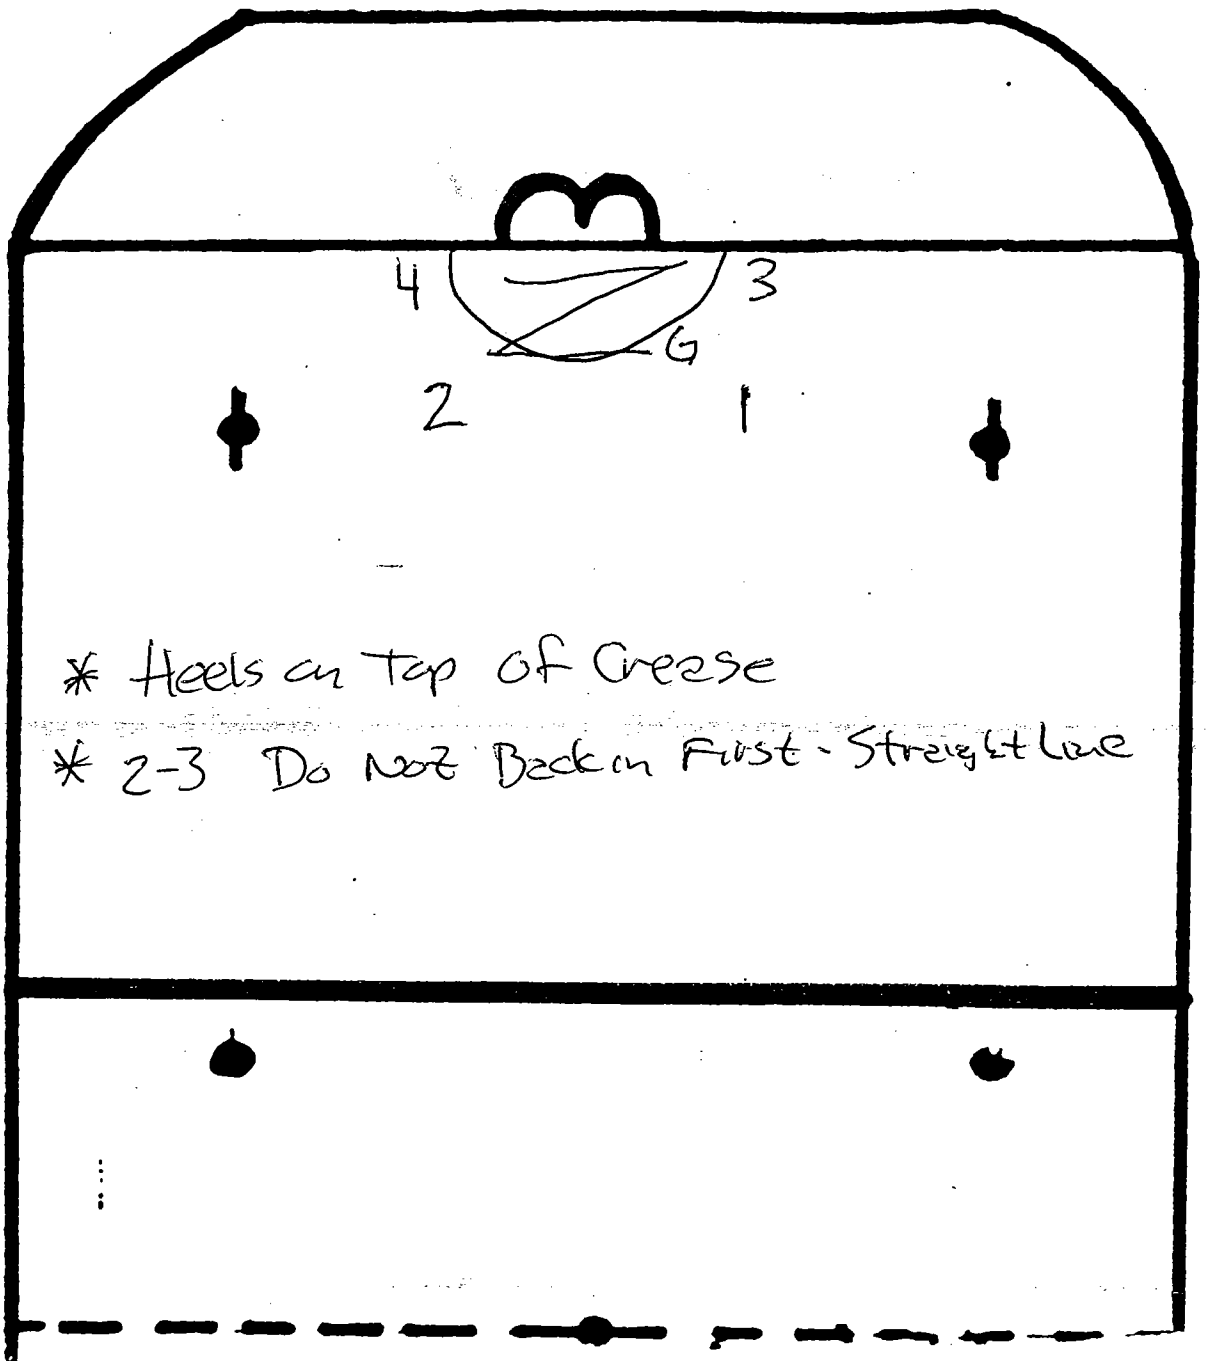 4 3
G
2 1
* Heels on Top of Crease
* 2-3 Do Not Back in First - Straight Line